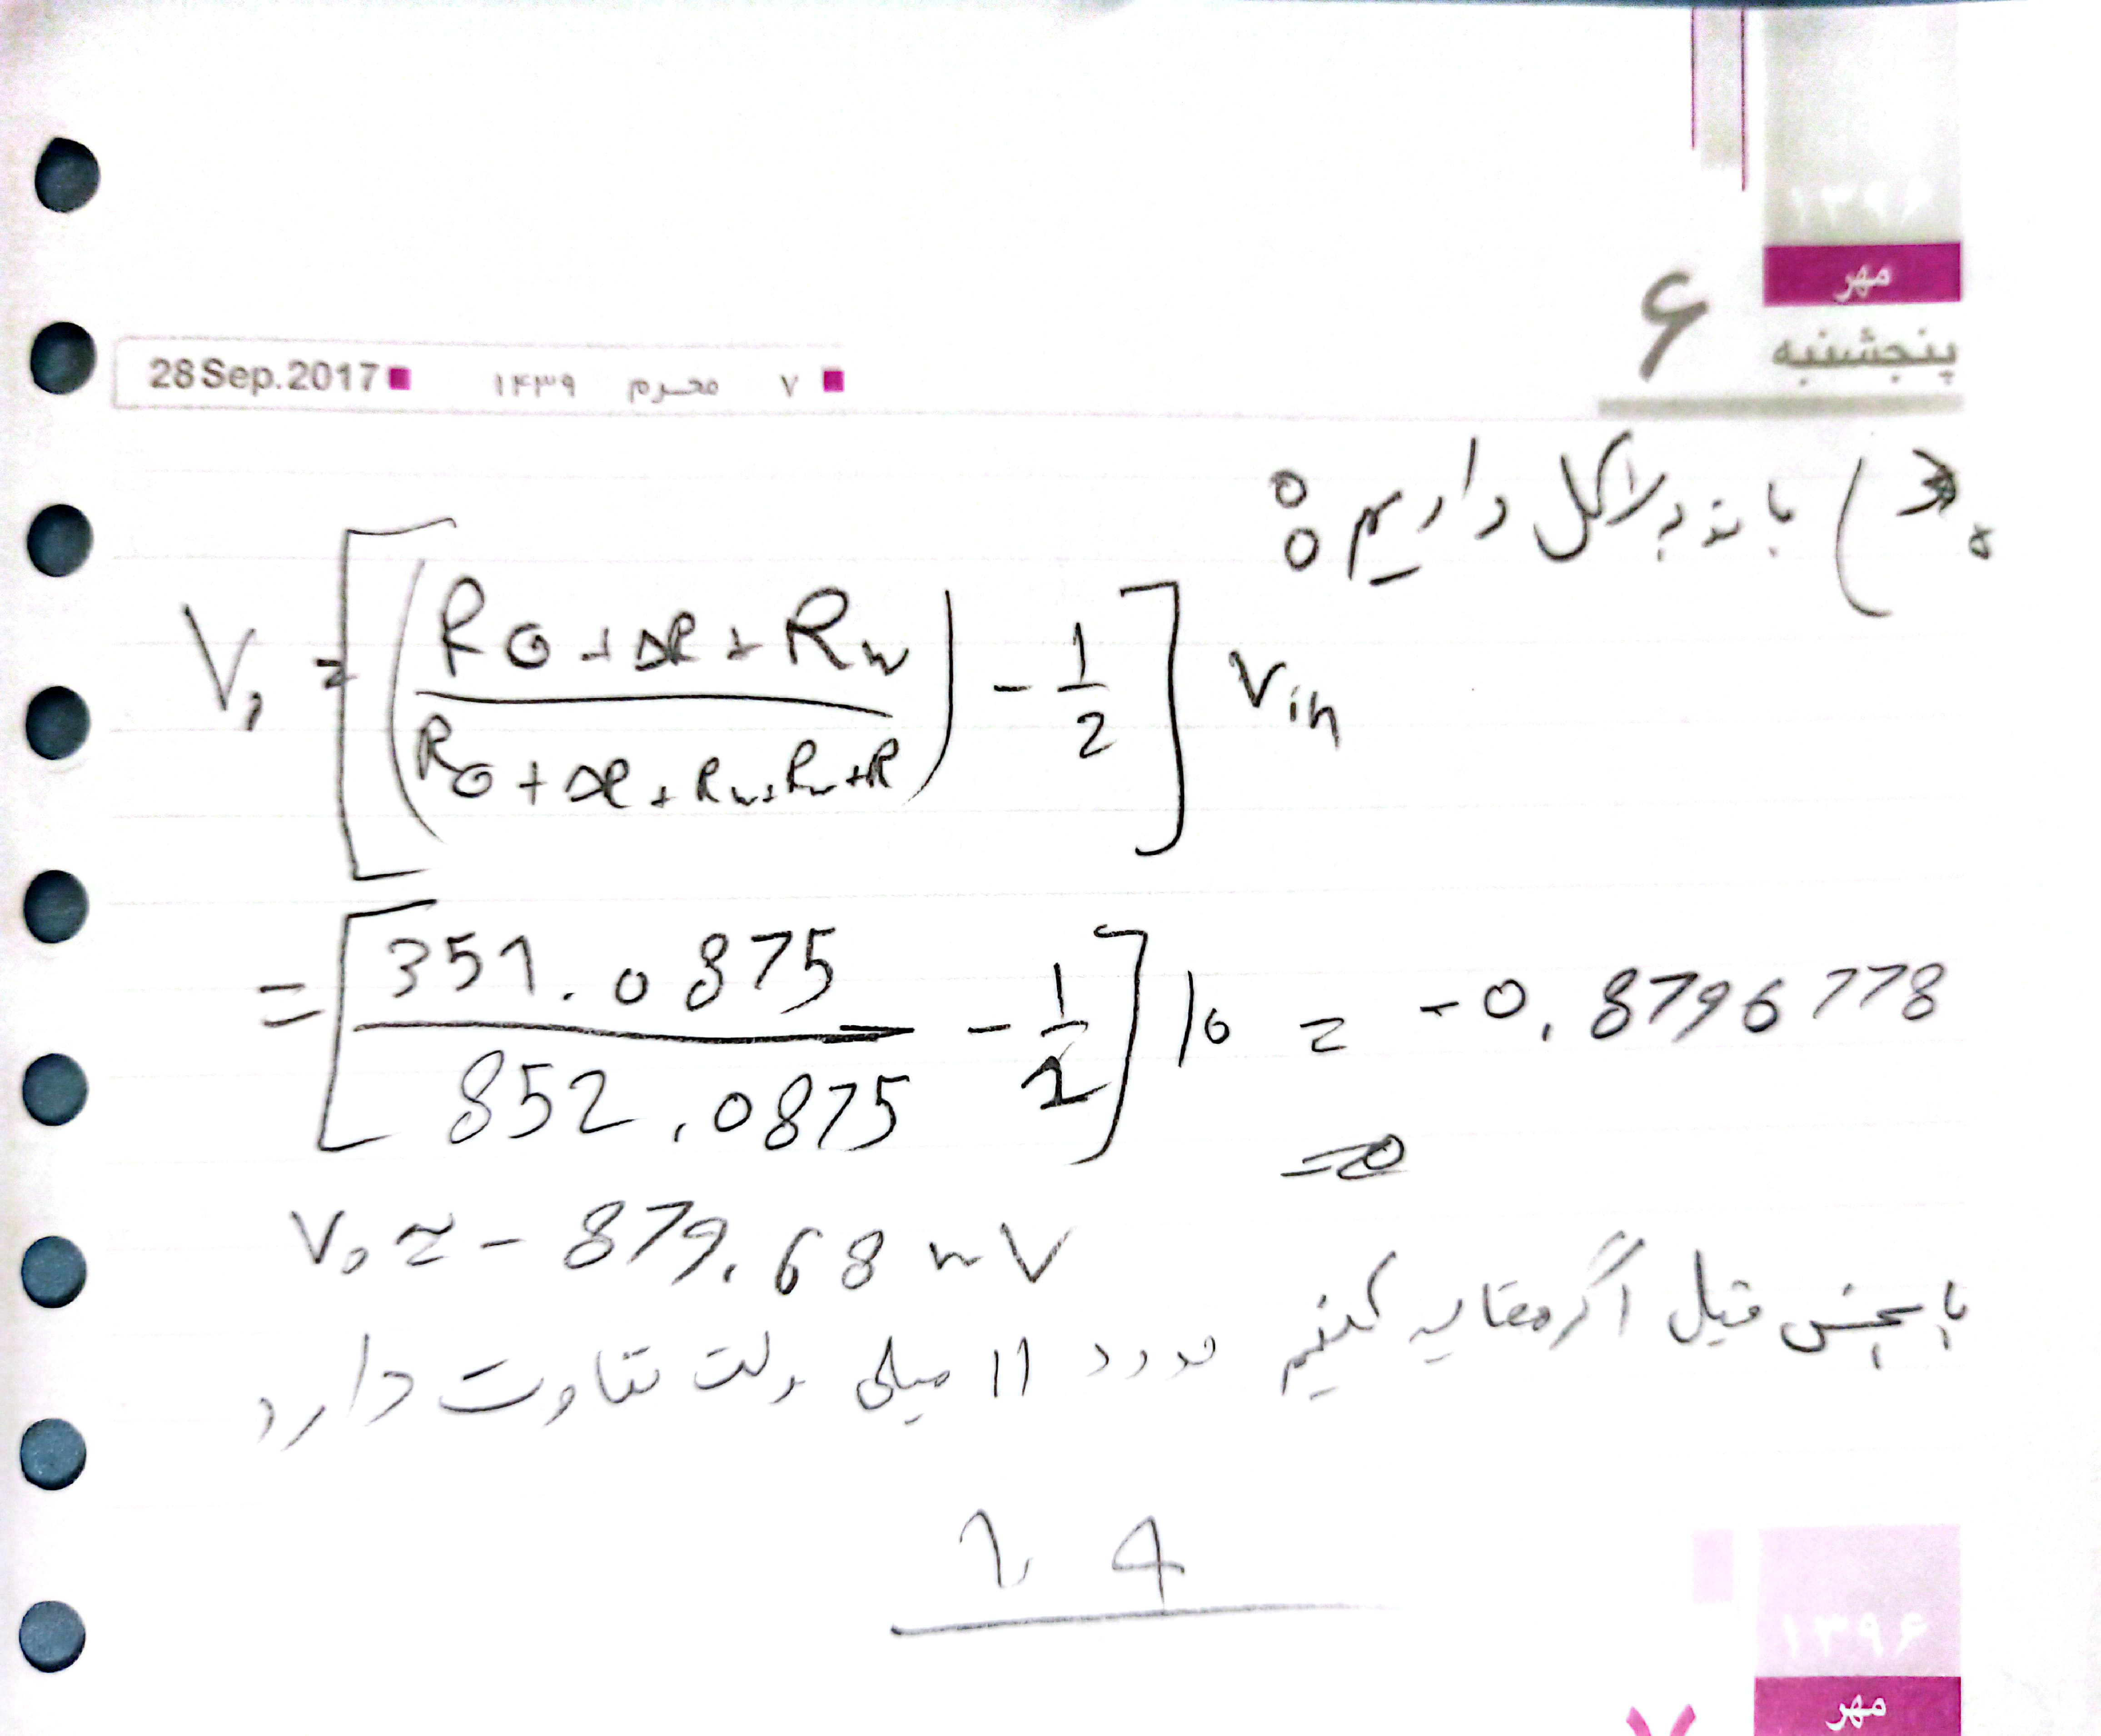 ۱۳۹۶
مهر
پنجشنبه
۶
28 Sep. 2017 ■ ۱۴۳۹ محرم ۷ ■
داریم:
V₀ = [((R₀ + ΔR + Rw) / (R₀ + ΔR + Rw + Rw + R)) - 1/2] Vin
= [351.0875 / 852.0875 - 1/2] 10 = -0.8796778
⇒
V₀ ≈ - 879.68 mV
با بخش قبل اگر مقایسه کنیم حدود 11 میلی ولت تفاوت دارد
۱۳۹۶
مهر
۷